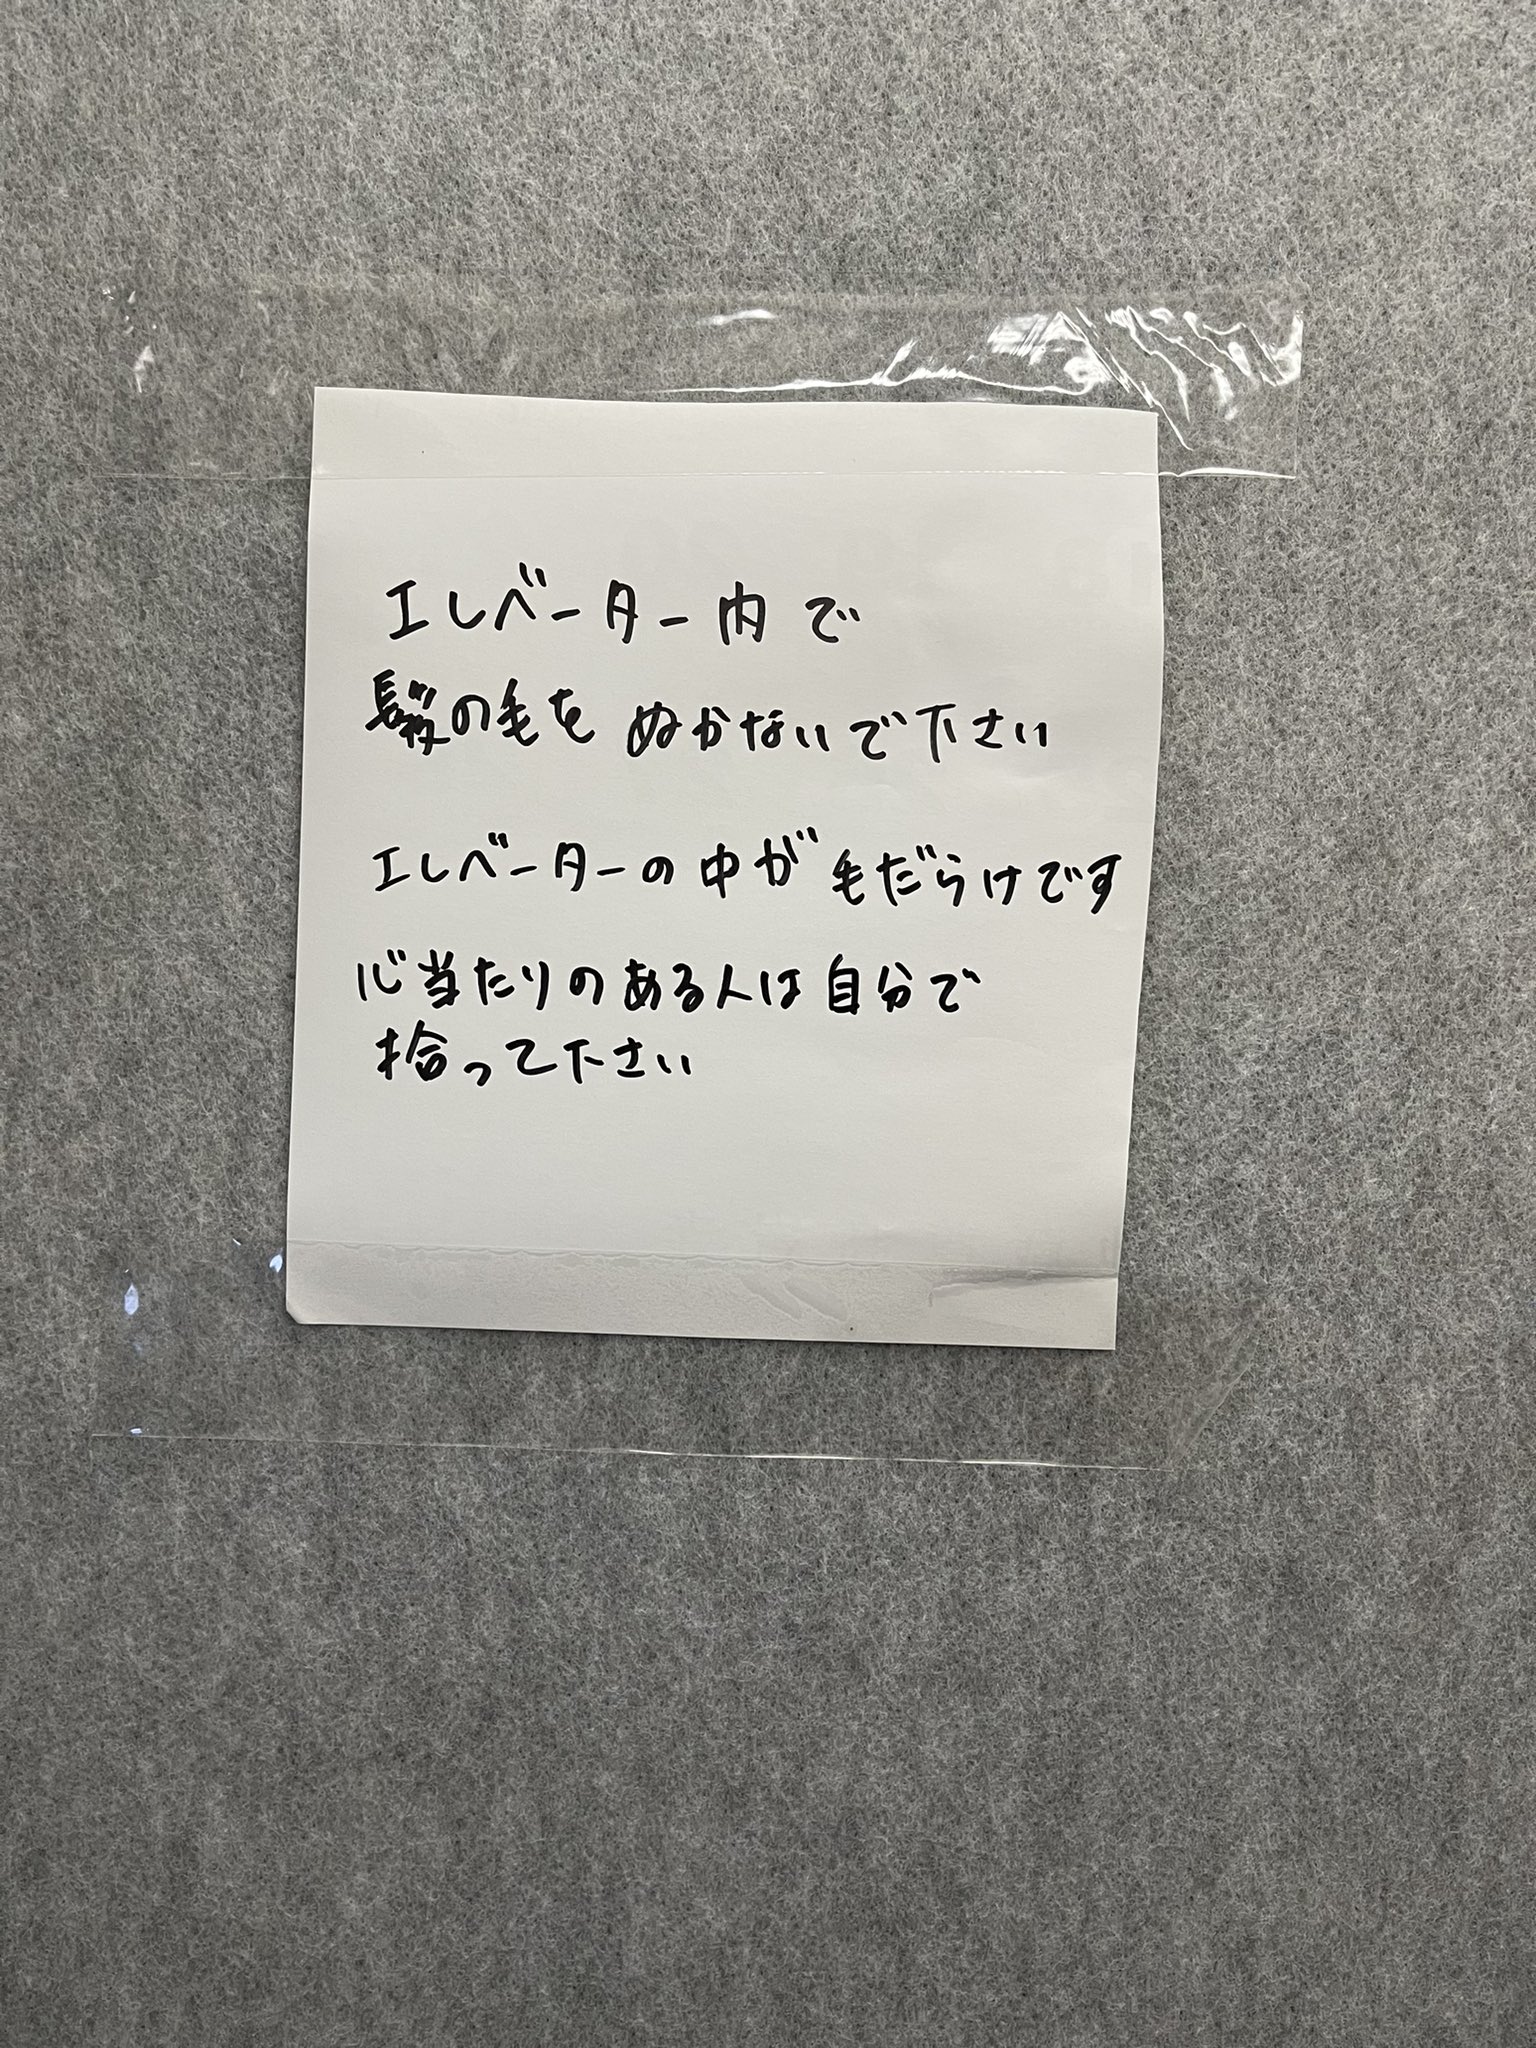 エレベーター内で
髪の毛を ぬかないで下さい
エレベーターの中が毛だらけです
心当たりのある人は自分で
拾って下さい